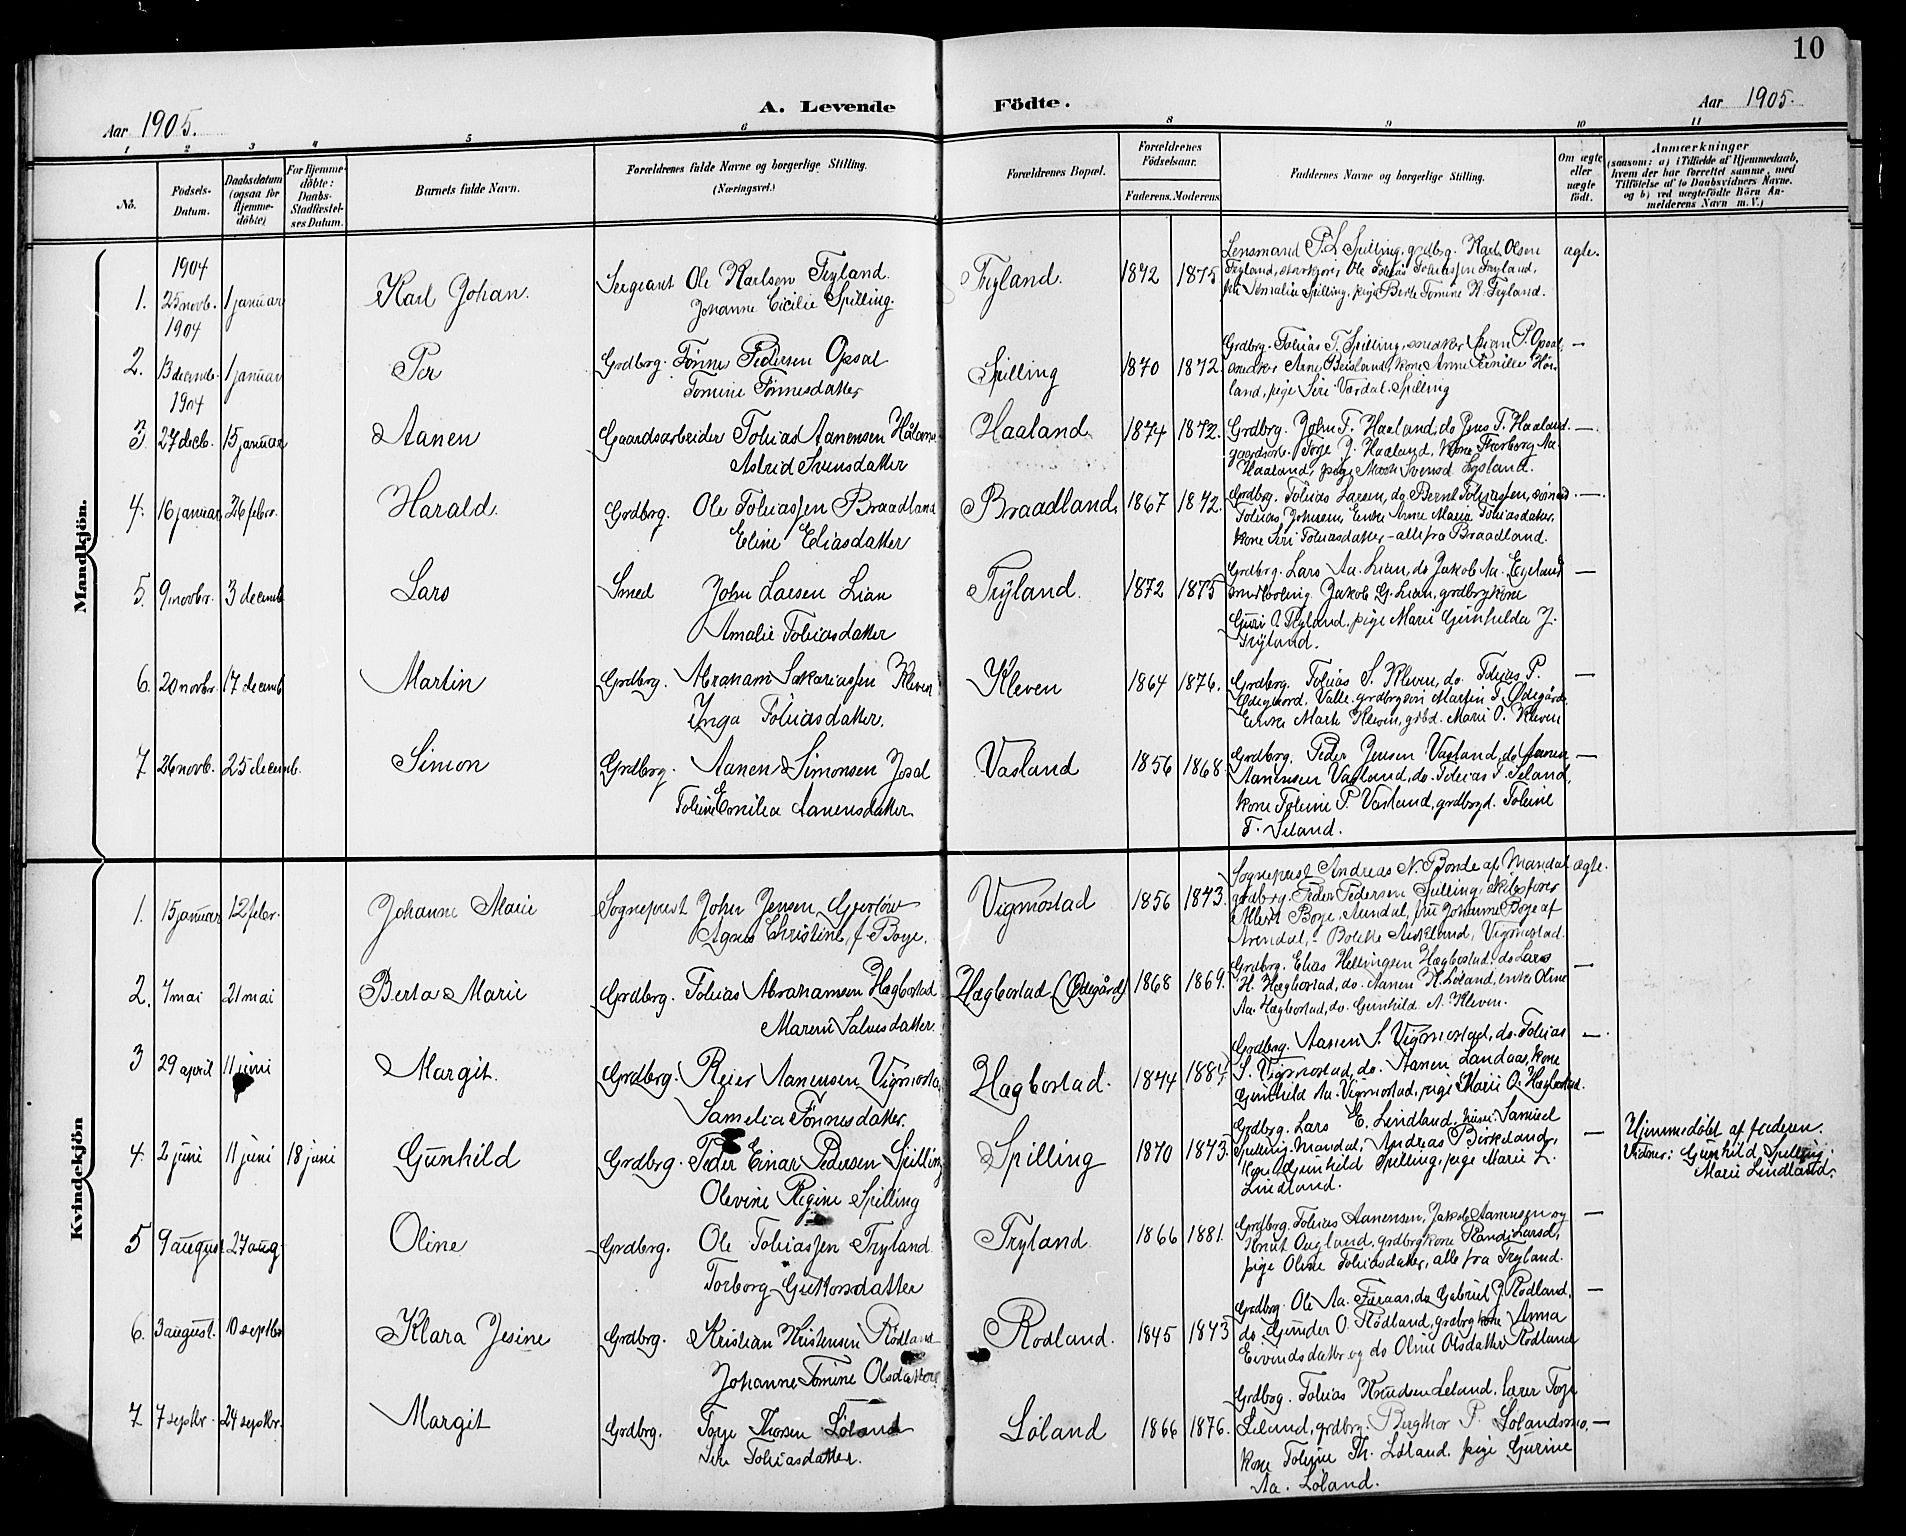 10
Aar 1905.
A. Levende Födte.
Aar 1905.
1 2 3 4 5 6 8 9 10 11
No.
Födsels-Datum.
Daabsdatum (ogsaa for Hjemme-döbte)
For Hjemme-döbte: Daabs-Stadfæstel-ses Datum.
Barnets fulde Navn.
Forældrenes fulde Navne og borgerlige Stilling.
(Næringsvei.)
Forældrenes Bopæl.
Forældrenes Födselsaar.
Faderens. Moderens.
Faddernes Navne og borgerlige Stilling.
Om ægte eller uægte födt.
Anmærkninger
(saasom: a) i Tilfælde af Hjemmedaab,
hvem der har forrettet samme, med
Tilföielse af to Daabsvidners Navne.
og b) ved uægtefödte Börn An-
melderens Navn m. V.)
Mandkjön.
1. 1904 25 novb. 1 januar Karl Johan. Sergeant Ole Karlsen Tryland. Johanne Cicilie Spilling. Tryland. 1872 1875
Lensmand P. L. Spilling, grdbrg. Karl Olsen
Tryland, Ole Tobias Tobiassen Tryland,
Spilling, pige Berte Tomine K. Tryland.
ægte.
2. 1904 13 decemb. 1 januar Per Grdbrg. Tönnes Pedersen Opsal Tomine Tönnesdatter Spilling 1870 1872.
Grdbrg. Tobias T. Spilling, snedker P. Opsal,
snedker Arne Beisland, kone Anne
land, pige Siri Vardal Spilling
—
3. 1904 27 decb. 15 januar Aanen Gaardsarbeider Tobias Aanensen Astrid Svensdatter Haaland 1874 1872.
Grdbrg. John T. Haaland, do Jens T. Haaland.
gaardsarb. Torje J. Haaland, kone Thorborg Aa.
Haaland, pige Svensd Lysland.
—
4. 16 januar 26 febr. Harald. Grdbrg. Ole Tobiassen Braadland Eline Eliasdatter Braadland. 1867 1872.
Grdbrg. Tobias Larsen, do Bernt Tobiassen,
Tobias Johnsen, Enke Anne Maria Tobiasdatter,
kone Siri Tobiasdatter - alle fra Braadland.
—
5. 9 novbr. 3 decemb Lars Smed John Larsen Lian Amalie Tobiasdatter Tryland. 1872 1875
Grdbrg. Lars Aa. Lian, do Jakob Aa. Egeland
Jakob G. Lian, grdbrgkone
Guri O. Tryland, pige Marie Gunhilda J.
Tryland.
—
6. 20 novbr. 17 decemb Martin Grdbrg. Abraham Sakariassen Kleven Inga Tobiasdatter. Kleven 1864 1876.
Grdbrg. Tobias S. Kleven, do. Tobias P.
Ödegaard, Valle. grdbrgsön Martin T. Ödegård,
Enke Marte Kleven, grbd. Marie O. Kleven
—
7. 26 novb. 25 decemb. Simon Grdbrg. Aanen Simonsen Josal Toline Emilia Aanensdatter Vasland 1856 1868
Grdbrg. Peder Jensen Vasland, do Aanen
Aanensen Vasland, do. Tobias T. Seland,
kone Toline P. Vasland, grdbrgd. Toline
T. Seland.
—
Kvindekjön
1. 15 januar 12 febr. Johanne Marie Sogneprest John Jensen Gjerlöw Agnes Christine, f. Boye. Vigmostad 1856 1873.
Sogneprest Andreas N. Bonde af Mandal
grdbrg. Peder Pedersen Spilling, skibsfører
Boye, Arendal, fru Johanne Boye af
Arendal, Bolette Vigmostad.
ægte.
2. 7 mai 21 mai Berta Marie Grdbrg. Tobias Abrahamsen Hægbostad Maren Salvesdatter. Hægbostad (Ödegård) 1868 1869.
Grdbrg. Elias Hellingsen Hægbostad, do Lars
H. Hægbostad, do. Aanen H. Loland, enke Oline
Aa. Hægbostad, do. Gunhild A. Kleven.
—
3 29 april 11 juni Margit. Grdbrg. Reier Aanensen Vigmosta Samelia Tönnesdatter. Hægbostad. 1874 1884
Grdbrg. Aanen S. Vigmostad, do. Tobias
S. Vigmostad, do. Aanen Landaas, kone
Gunhild Aa. Vigmostad, pige Marie O. Hægbostad.
—
4. 2 juni 11 juni 18 juni Gunhild Grdbrg. Peder Einar Pedersen Spilling Olevine Regine Spilling Spilling 1870 1873.
Grdbrg. Lars E. Lindland, Samuel
Spilling Mandal, Andreas Birkeland,
kone Gunhild Spilling, pige Marie L.
Lindland.
—
Hjemmedøbt af faderen.
Vidner: Gunhild Spilling.
Marie Lindland.
5 9 august 27 aug. Oline Grdbrg. Ole Tobiassen Tryland Torborg Guttormsdatter Tryland 1866 1881.
Grdbrg. Tobias Aanensen, Jakob Aanensen og
Knut Augland, grdbrgkone Randi Larsd,
pige Oline Tobiasdatter, alle fra Tryland.
—
6. 3 august. 10 septbr Klara Jesine Grdbrg. Kristian Kristensen Rödland Johanne Tomine Olsdatter Rödland. 1845 1873
Grdbrg. Ole Aa. Faraas, do Gabriel J. Rödland,
do. Gunder O. Rödland, grdbrgkone Anna
Eivindsdatter og do Oline Olsdatter Rödland
—
7. 7 septbr. 24 septbr. Margit Grdbrg. Torje Thorsen Löland Siri Tobiasdatter. Löland 1866 1876.
Grdbrg. Tobias Knudsen Leland, lærer Torje
Leland, grdbrg. Bergthor P. Lölandsmo,
kone Toline Th. Löland, pige Gurine
Aa. Löland.
—